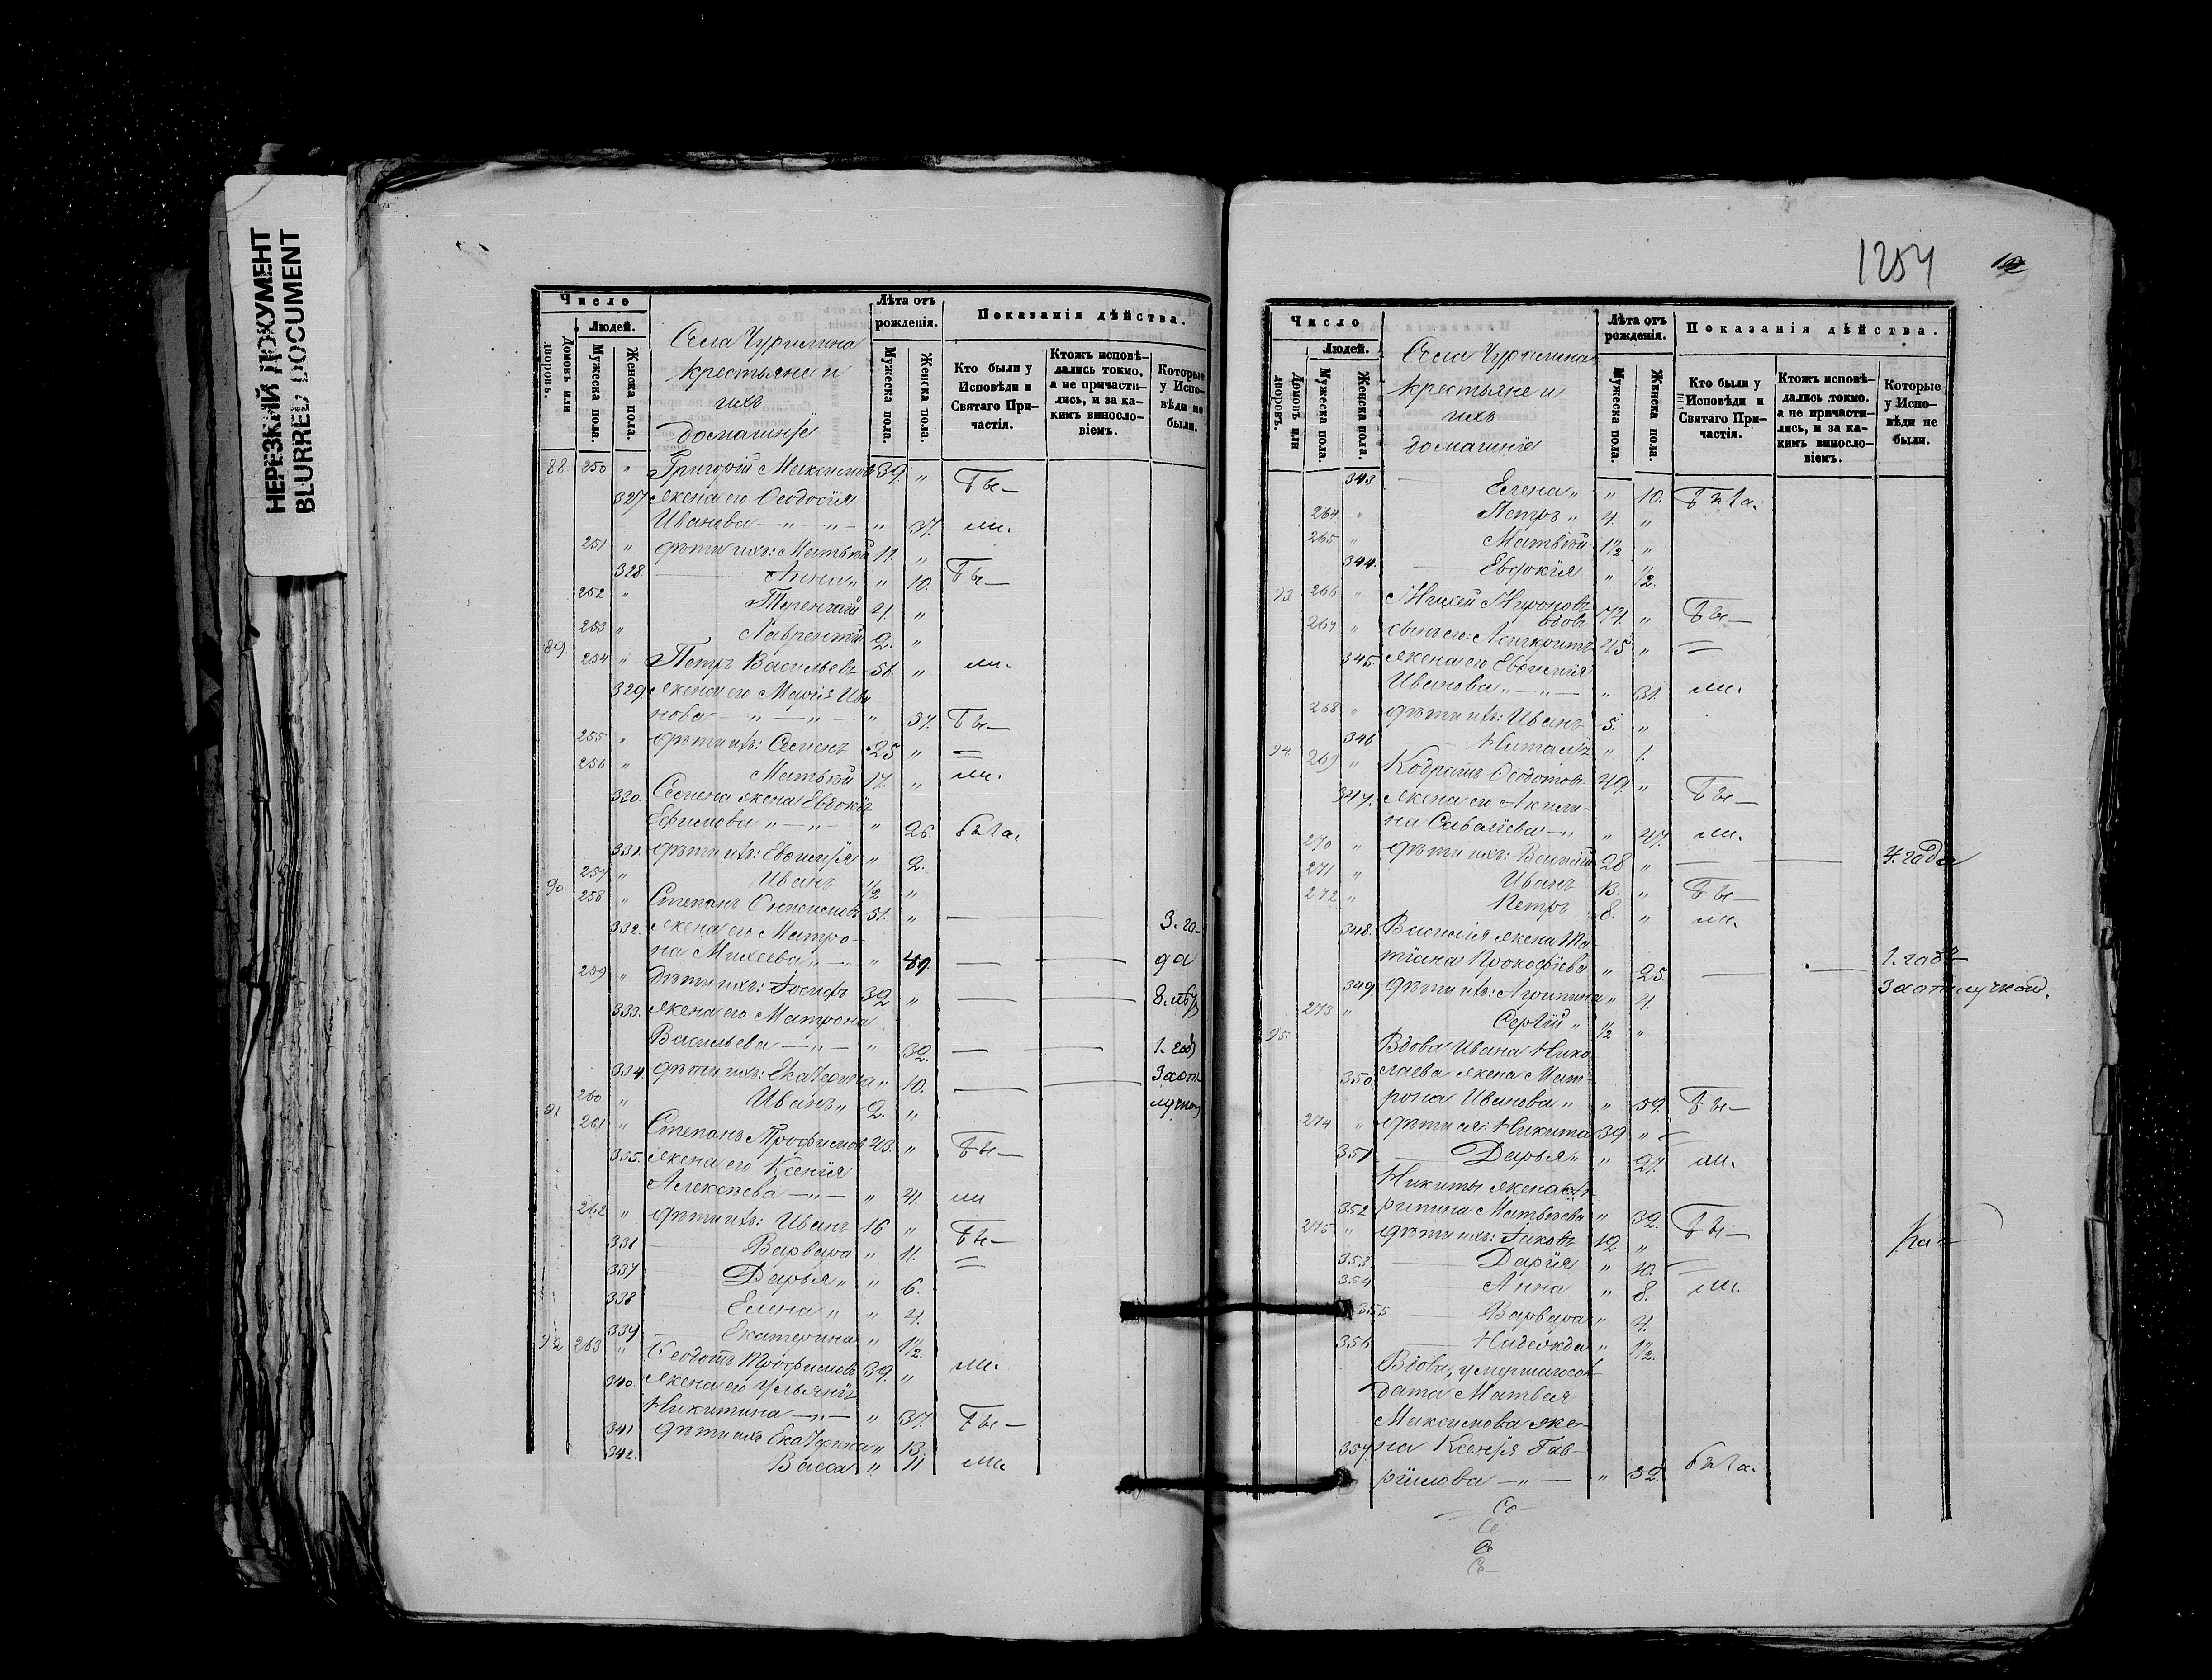 НЕРЕЗКИЙ ДОКУМЕНТ
BLURRED DOCUMENT
Число
Людей.
Домовъ или дворовъ.
Мужеска пола.
Женска пола.
Села Чурилина
крестьяне и
ихъ
домашніе
Лѣта отъ рожденія.
Мужеска пола.
Женска пола.
Показанія дѣйства.
Кто были у Исповѣди и Святаго Причастія.
Ктожъ исповѣдались токмо, а не причастились, и за какимъ винословіемъ.
Которые у Исповѣди не были.
88. 250 " Григорій Максимовъ 39. " бы-
327. жена его Ѳеодосія
Иванова — " — " — " 37. ли.
251 " дѣти ихъ: Матвѣй 11. "
328. Анна " " 10. бы-
252 " Терентій 4. "
253 " Лаврентій 2. "
89. 254 " Петръ Васильевъ 56. " ли.
329. жена его Марія Ива
нова — " — " — " 37. бы-
255 " дѣти ихъ: Семенъ 25 " =
256 " Матвѣй 17. " ли.
330. Семена жена Евдокія
Ефимова " — " — " 26. была.
331. дѣти ихъ: Евфимія " 2.
257 " Иванъ 1/2 "
90 258 " Степанъ Онисимовъ 51. " — — 3. го-
332. жена его Матро-
на Михеева " — " 49. — — да
259 " дѣти ихъ: Іосифъ 32 " — —
333. жена его Матрона
Васильева — " — " 32. — — 1. годъ
334. дѣти ихъ: Екатерина " 10. — — за от
260 " Иванъ " 2. " лучкою
91 261 " Степанъ Трофимовъ 43. " бы-
335. жена его Ксенія
Алексѣева — " — " 41. ли
262 " дѣти ихъ: Иванъ 16 " бы-
336 Варвара " 11. =
337 Дарья " " 6.
338 Елена " " 4.
339 Екатерина " 1 1/2.
92 263 " Ѳеодотъ Трофимовъ 39. " ли.
340. жена его Ульянія
Никитина — " — " 37. бы-
341 дѣти ихъ Екатерина " 13.
342. Васса " 11 ли.
1254
Число
Людей.
Домовъ или дворовъ.
Мужеска пола.
Женска пола.
Села Чурилина
крестьяне и
ихъ
домашніе
Лѣта отъ рожденія.
Мужеска пола.
Женска пола.
Показанія дѣйства.
Кто были у Исповѣди и Святаго Причастія.
Ктожъ исповѣдались токмо, а не причастились, и за какимъ винословіемъ.
Которые у Исповѣди не были.
343 Елена " " 10. была.
264 " Петръ " 4. "
265 " Матвѣй 1 1/2 "
344. Евдокія " 1/2.
93 266 " Михей Мироновъ
вдовъ 74. " бы-
267 " сынъ его: Асигкритъ 45 " =
345. жена его Евфимія
Иванова " — " — " 31. ли.
268 " дѣти ихъ: Иванъ 5. "
346 Наталія " 1.
94. 269 " Кодратъ Ѳеодотовъ 49. " бы-
347. жена его Акили-
на Саватіева — " " 47. ли.
270 " дѣти ихъ: Василій 28 " — — 4. года
271 " Иванъ 13. " бы-
272 " Петръ 8. " ли.
348. Василія жена Та-
тіана Прокофіева " 25. — — 1. годъ
349. дѣти ихъ: Агрипина " 4. за отлучкой.
273 " Сергій " 1/2 "
95. Вдова Ивана Нико-
лаева жена Мат-
350. рона Иванова " " 59. бы-
274 " дѣти ея: Никита 39 " =
351 Дарья " " 27. ли.
Никиты жена Аг-
352 рипина Матвѣева " 32. бы-
275 " дѣти ихъ: Іаковъ 12 "
353. Дарія " 10. =
354 Анна " 8. ли.
355 Варвара " 4.
356 Надежда " 1 1/2.
Вдова, умершаго сол-
дата Матвея
Максимова же-
357. на Ксенія Гав-
ріилова — " — " 32. была.